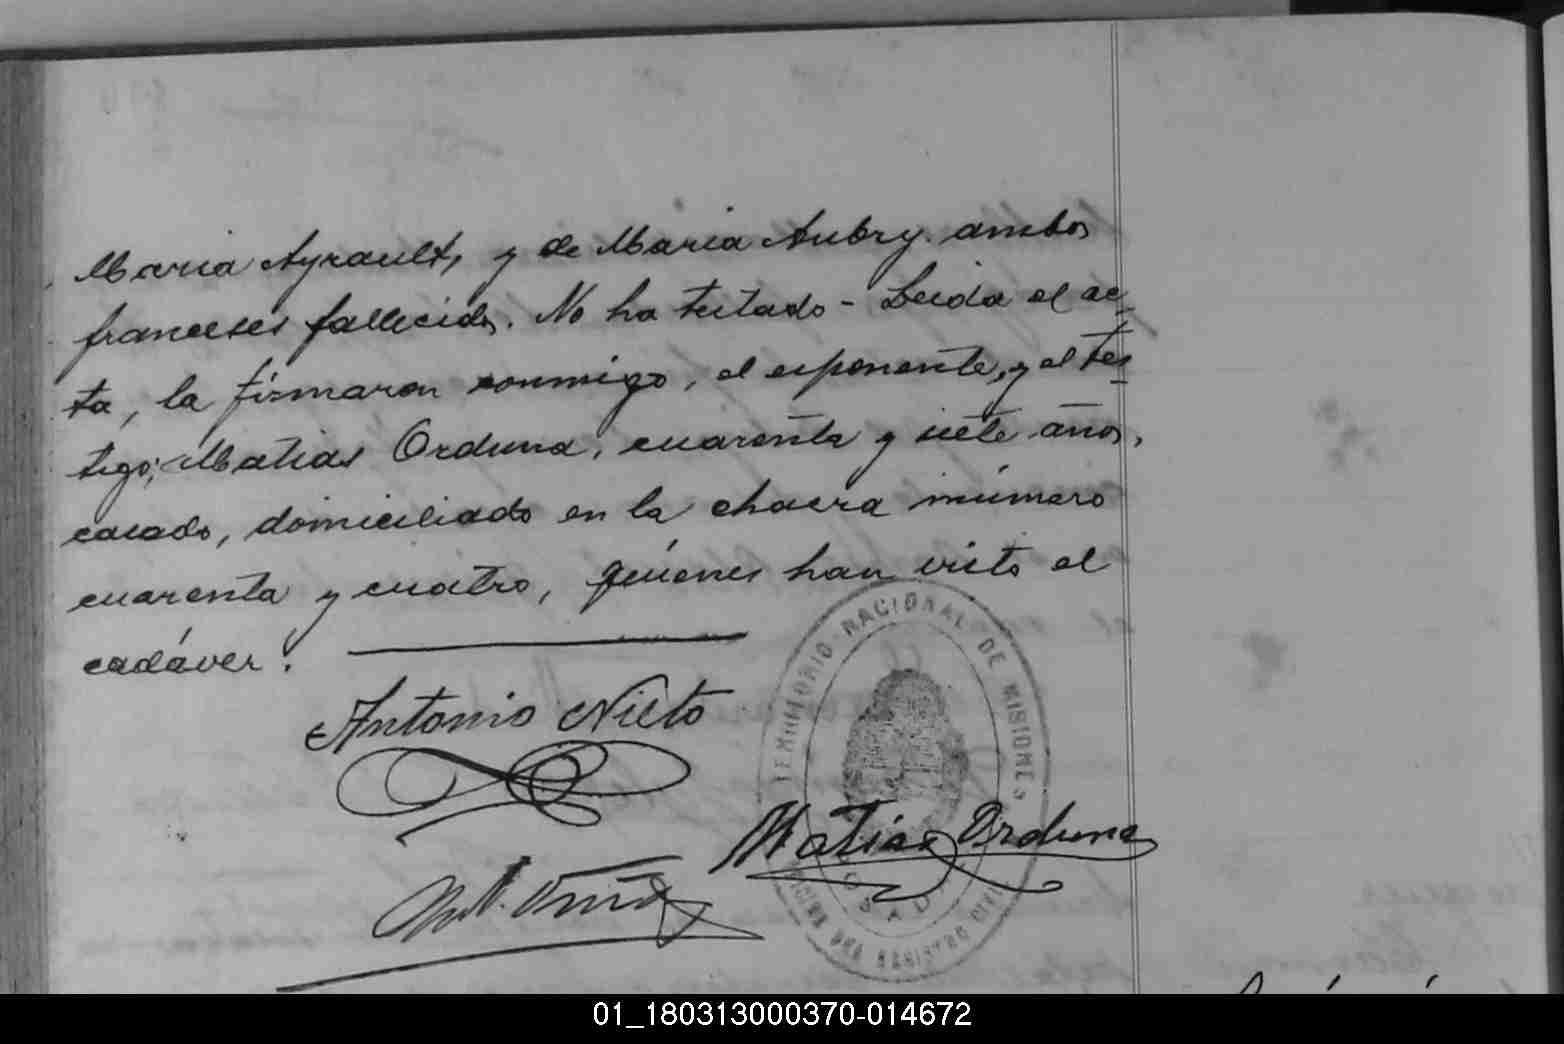 Maria Ayrault, y de Maria Aubry. ambos
franceses fallecidos. No ha testado - Leida el ac-
ta, la firmaron conmigo, el esponente, y el tes-
tigo; Matias Orduna, cuarenta y siete años,
casado, domiciliado en la chacra número
cuarenta y cuatro, quienes han visto el
cadáver.
Antonio Nieto
TERRITORIO NACIONAL DE MISIONES
Matias Orduna
OFICINA DEL REGISTRO CIVIL
01_180313000370-014672